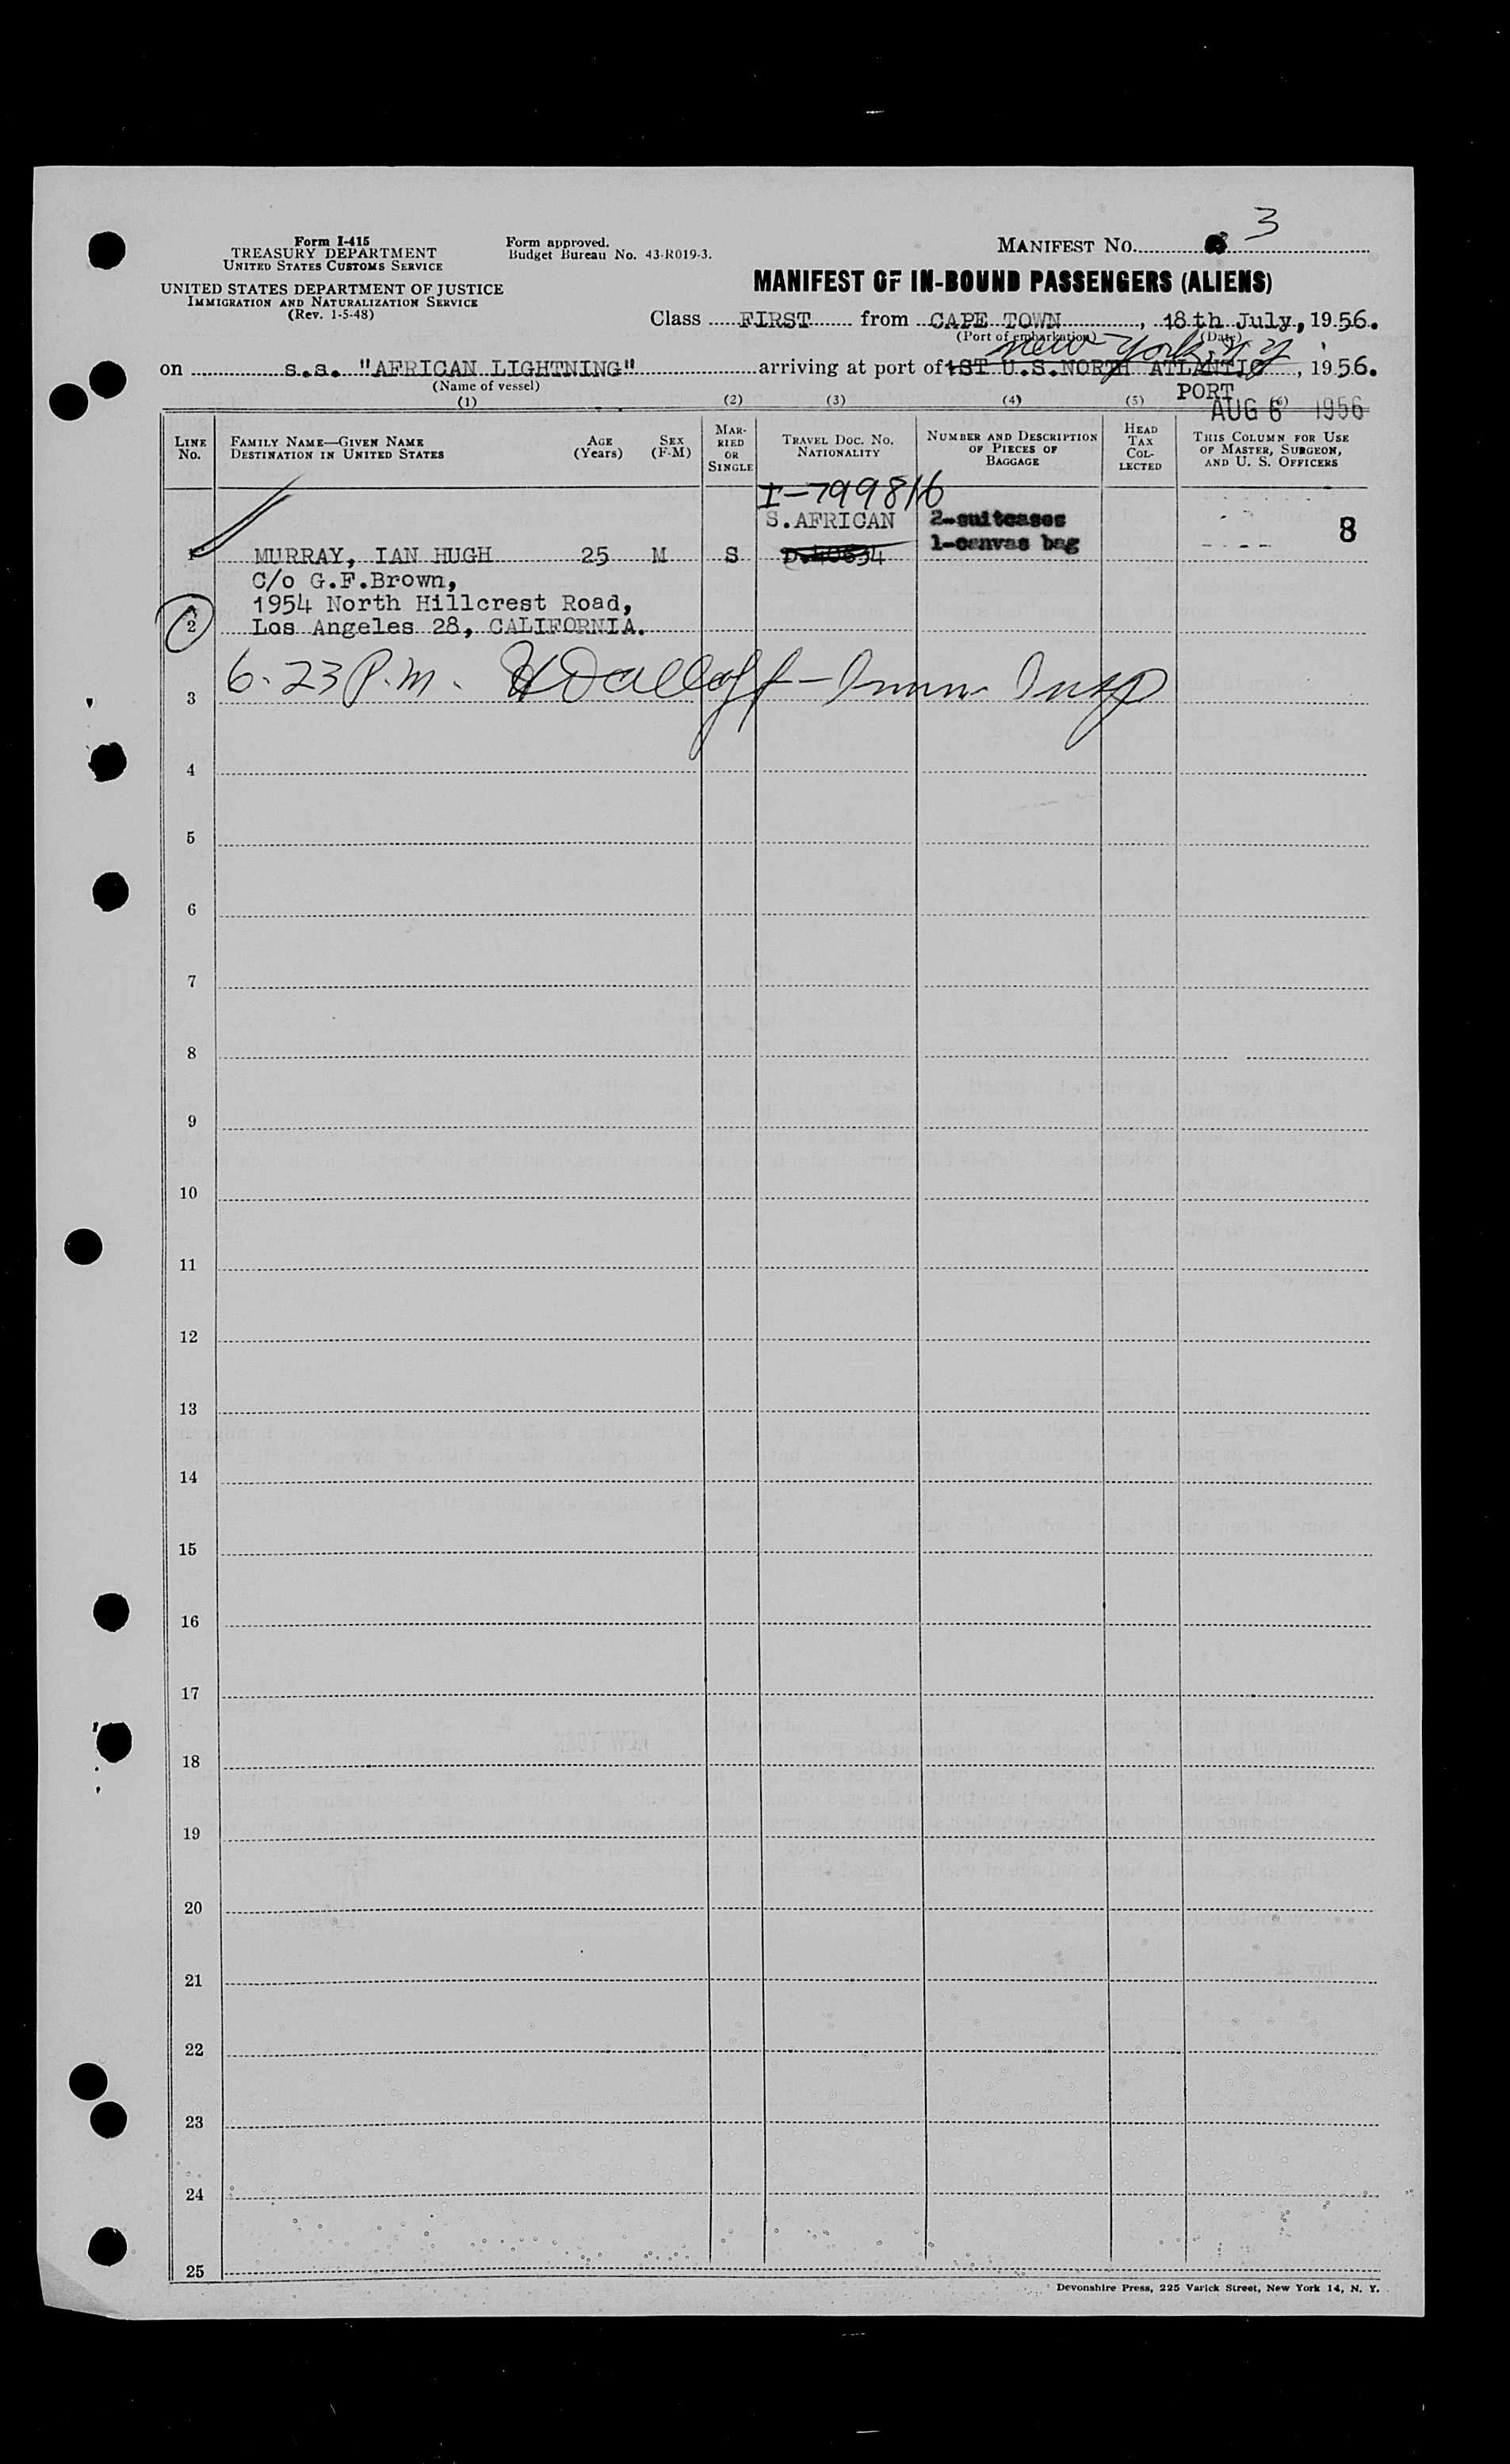 Form I-415
TREASURY DEPARTMENT
UNITED STATES CUSTOMS SERVICE
UNITED STATES DEPARTMENT OF JUSTICE
IMMIGRATION AND NATURALIZATION SERVICE
(Rev. 1-5-48)
Form approved.
Budget Bureau No. 43-R019-3.
MANIFEST NO. 3
MANIFEST OF IN-BOUND PASSENGERS (ALIENS)
Class FIRST from CAPE TOWN, 18th July, 1956.
(Port of embarkation) (Date)
New York, N.Y.
on s.s. "AFRICAN LIGHTNING" arriving at port of 1ST U.S.NORTH ATLANTIC, 1956.
(Name of vessel)
PORT
AUG 6 1956
(1) (2) (3) (4) (5)
LINE No.
FAMILY NAME—GIVEN NAME
DESTINATION IN UNITED STATES
AGE (Years)
SEX (F-M)
MARRIED OR SINGLE
TRAVEL DOC. NO. NATIONALITY
NUMBER AND DESCRIPTION OF PIECES OF BAGGAGE
HEAD TAX COLLECTED
THIS COLUMN FOR USE OF MASTER, SURGEON, AND U. S. OFFICERS
I-799816
S.AFRICAN 2-suitcases 8
1-canvas bag
1 MURRAY, IAN HUGH 25 M S
C/o G.F.Brown,
1954 North Hillcrest Road,
2 Los Angeles 28, CALIFORNIA.
6.23 P.M. - Imm Insp
3
4
5
6
7
8
9
10
11
12
13
14
15
16
17
18
19
20
21
22
23
24
25
Devonshire Press, 225 Varick Street, New York 14, N. Y.